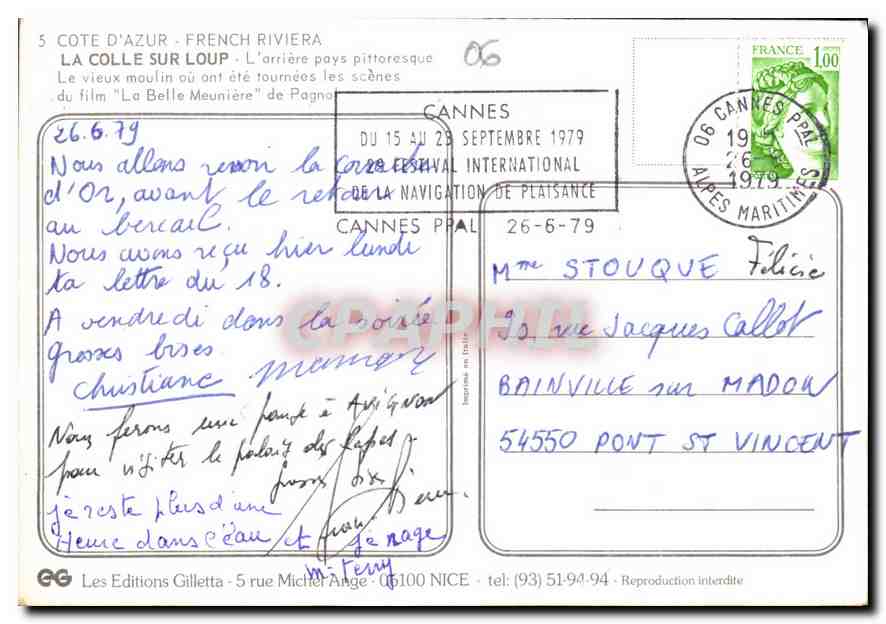 5 COTE D'AZUR - FRENCH RIVIERA
LA COLLE SUR LOUP - L'arrière pays pittoresque
Le vieux moulin où ont été tournées les scènes
du film "La Belle Meunière" de Pagnol
06
FRANCE 1,00
CANNES
DU 15 AU 23 SEPTEMBRE 1979
2e FESTIVAL INTERNATIONAL
DE LA NAVIGATION DE PLAISANCE
CANNES PPAL 26-6-79
06 CANNES PPAL
26-6
1979
ALPES MARITIMES
26.6.79
Nous allons revoir la
d'Or, avant le retour
au bercail.
Nous avons reçu hier lundi
ta lettre du 18.
A vendredi dans la soirée
grosses bises
Christiane maman
Nous ferons une pause à AVIGNON
pour visiter le palais des Papes
grosses bises
je reste plus d'une
Heure dans l'eau et je nage
Mme STOUQUE Félicie
93 rue Jacques Callot
BAINVILLE sur MADON
54550 PONT ST VINCENT
CPAPHIL
Imprimé en Italie
EG Les Editions Gilletta - 5 rue Michel Ange - 06100 NICE - tel: (93) 51-94-94 - Reproduction interdite